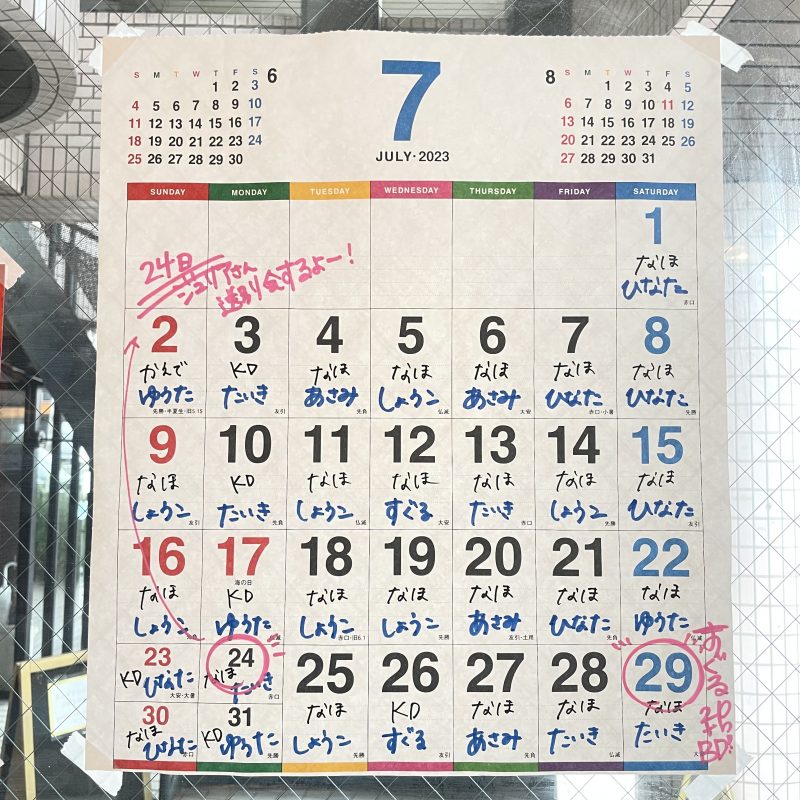 6
S M T W T F S
1 2 3
4 5 6 7 8 9 10
11 12 13 14 15 16 17
18 19 20 21 22 23 24
25 26 27 28 29 30
7
JULY・2023
8
S M T W T F S
1 2 3 4 5
6 7 8 9 10 11 12
13 14 15 16 17 18 19
20 21 22 23 24 25 26
27 28 29 30 31
SUNDAY MONDAY TUESDAY WEDNESDAY THURSDAY FRIDAY SATURDAY
24日
ジュリアさん
送別会するよー!
1
なほ
ひなた
赤口
2 3 4 5 6 7 8
かえで KD なほ なほ なほ なほ なほ
ゆうた たいき あさみ しょうこ あさみ ひなた ひなた
先勝・半夏生・旧5.15 友引 先負 仏滅 大安 赤口・小暑 先勝
9 10 11 12 13 14 15
なほ KD なほ なほ なほ なほ なほ
しょうこ たいき しょうこ すぐる たいき しょうこ ひなた
友引 先負 仏滅 大安 赤口 先勝 友引
16 17 18 19 20 21 22
海の日
なほ KD なほ なほ なほ なほ なほ
しょうこ ゆうた しょうこ しょうこ あさみ ひなた ゆうた
先負 仏滅 赤口・旧6.1 先勝 友引・土用 先負 仏滅
23 24 25 26 27 28 29
KD なほ なほ KD なほ なほ なほ
ひなた たいき しょうこ すぐる あさみ たいき たいき
大安・大暑 赤口 先勝 友引 先負 仏滅
30 31
なほ KD
ひなた ゆうた
赤口 先勝
すぐる
BD